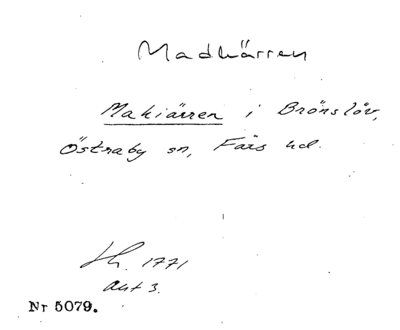 Madkärren
Makiärren i Brönslöv,
Östraby sn, Färs hd.
Lh. 1771
Akt 3.
Nr 5079.